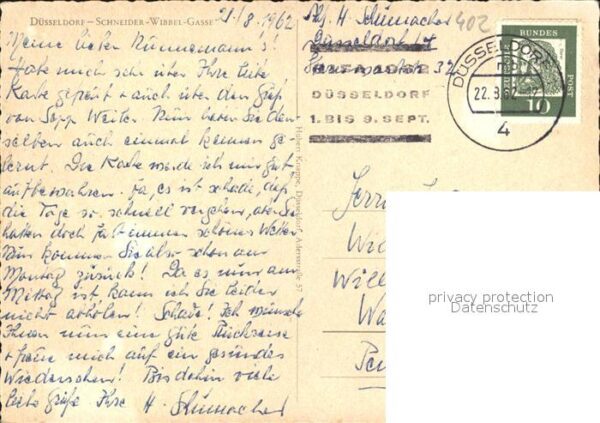 DÜSSELDORF – SCHNEIDER-WIBBEL-GASSE
21/8.1962
Meine lieben Nünnemann's!
Habe mich sehr über Ihre liebe
Karte gefreut + auch über den Gruß
von Sepp Weiler. Nun haben Sie den-
selben auch einmal kennen ge-
lernt. Die Karte werde ich mir gut
aufbewahren. Ja, es ist schade, daß
die Tage so schnell vergehen, aber Sie
hatten doch fast immer schönes Wetter
Nun kommen Sie also schon am
Montag zurück! Da es nun am
Mittag ist, kann ich Sie leider
nicht abholen! Schade! Ich wünsche
Ihnen nun eine gute Rückreise
+ freue mich auf ein gesundes
Wiedersehen! Bis dahin viele
liebe Grüße Ihre H. Schumacher
Hubert Knuppe, Düsseldorf, Adersstraße 57
Abs. H. Schumacher
Düsseldorf
32
402
DÜSSELDORF
1. BIS 9. SEPT.
DÜSSELDORF
22.8.62
4
BUNDES
POST
10
privacy protection
Datenschutz